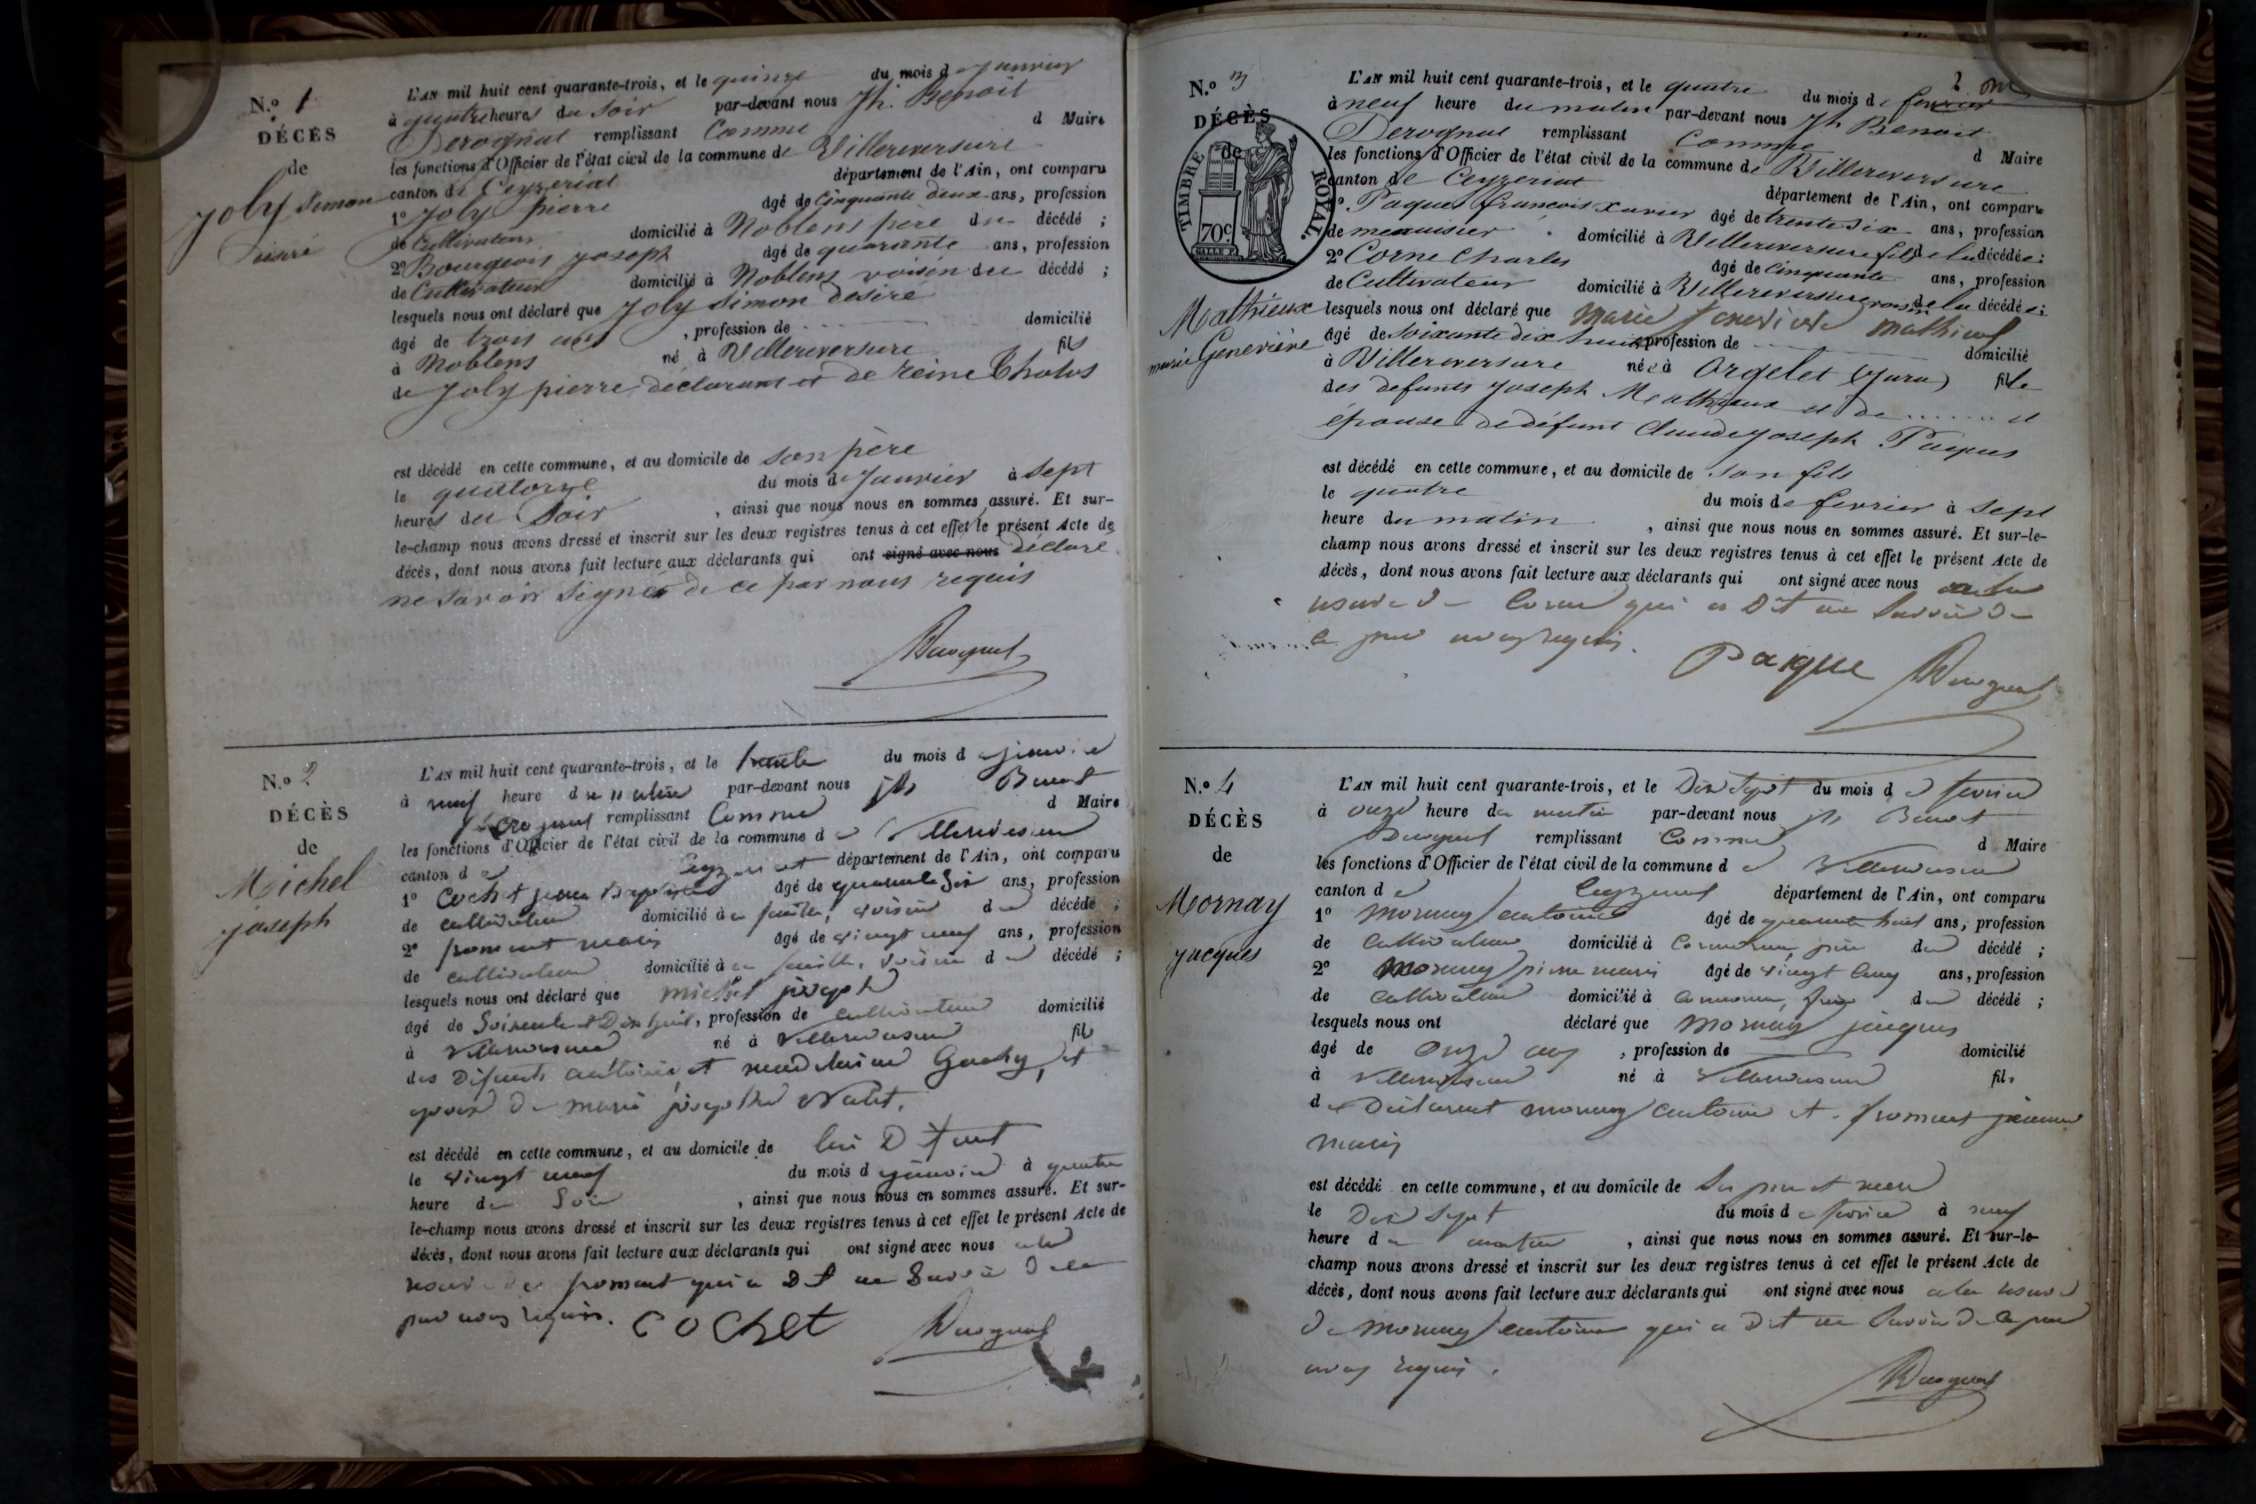 N.o 1
DÉCÈS
de
Joly Simon
Désiré
L'AN mil huit cent quarante-trois, et le quinze du mois de Janvier
à quatre heures du soir par-devant nous Jh. Benoit
Derognat remplissant Comme d Maire
les fonctions d'Officier de l'état civil de la commune de Villereversure
canton de Ceyzeriat département de l'Ain, ont comparu
1o Joly pierre âgé de Cinquante deux ans, profession
de Cultivateur domicilié à Noblens père du décédé ;
2o Bourgeois joseph âgé de quarante ans, profession
de Cultivateur domicilié à Noblens voisin du décédé ;
lesquels nous ont déclaré que Joly Simon désiré
âgé de trois ans, profession de domicilié
à Noblens né à Villereversure fils
de Joly pierre déclarant et de reine
est décédé en cette commune, et au domicile de son père
le quatorze du mois de Janvier à Sept
heures du Soir, ainsi que nous nous en sommes assuré. Et sur-
le-champ nous avons dressé et inscrit sur les deux registres tenus à cet effet le présent Acte de
décès, dont nous avons fait lecture aux déclarants qui ont signé avec nous déclaré
ne savoir signer de ce par nous requis
Derognat
N.o 2
DÉCÈS
de
Michel
joseph
L'AN mil huit cent quarante-trois, et le trente du mois de janvier
à neuf heure du matin par-devant nous jh Benoit
Derognat remplissant Comme d Maire
les fonctions d'Officier de l'état civil de la commune de Villereversure
canton de Ceyzeriat département de l'Ain, ont comparu
1o Cochet jean Baptiste âgé de quarante Six ans, profession
de cultivateur domicilié à voisin du décédé ;
2o froment marie âgé de vingt neuf ans, profession
de cultivateur domicilié à voisin du décédé ;
lesquels nous ont déclaré que michel joseph
âgé de Soixante et Dix huit, profession de cultivateur domicilié
à Villereversure né à Villereversure fils
des Défunts antoine et Gachy, et
époux de marie josephte
est décédé en cette commune, et au domicile de lui Défunt
le vingt neuf du mois de janvier à quatre
heure du Soir, ainsi que nous nous en sommes assuré. Et sur-
le-champ nous avons dressé et inscrit sur les deux registres tenus à cet effet le présent Acte de
décès, dont nous avons fait lecture aux déclarants qui ont signé avec nous a la
reserve de froment qui a Dit ne Savoir De ce
par nous requis. COCHET
Derognat
2
N.o 3
DÉCÈS
de
TIMBRE ROYAL.
70c.
Mathieux
marie Geneviève
L'AN mil huit cent quarante-trois, et le quatre du mois de fevrier
à neuf heure du matin par-devant nous Jh Benoit
Derognat remplissant Comme d Maire
les fonctions d'Officier de l'état civil de la commune de Villereversure
canton de Ceyzeriat département de l'Ain, ont comparu
1o Paques françois xavier âgé de trente six ans, profession
de menuisier domicilié à Villereversure fils de la décédée ;
2o Corne Charles âgé de Cinquante ans, profession
de Cultivateur domicilié à Villereversure voisin de la décédée ;
lesquels nous ont déclaré que Marie Genevieve Mathieux
âgé de soixante dix huit profession de domicilié
à Villereversure née à Orgelet (Jura) fille
des defunts joseph Mathieux et de et
épouse de défunt Claude joseph Paques
est décédé en cette commune, et au domicile de son fils
le quatre du mois de fevrier à Sept
heure du matin, ainsi que nous nous en sommes assuré. Et sur-le-
champ nous avons dressé et inscrit sur les deux registres tenus à cet effet le présent Acte de
décès, dont nous avons fait lecture aux déclarants qui ont signé avec nous a la
reserve de Corne qui a Dit ne Savoir De
ce par nous requis.
Paque Derognat
N.o 4
DÉCÈS
de
Mornay
jacques
L'AN mil huit cent quarante-trois, et le Dix Sept du mois de fevrier
à onze heure du matin par-devant nous jh Benoit
Derognat remplissant Comme d Maire
les fonctions d'Officier de l'état civil de la commune de Villereversure
canton de Ceyzeriat département de l'Ain, ont comparu
1o Mornay antoine âgé de quarante huit ans, profession
de Cultivateur domicilié à père du décédé ;
2o Mornay pierre marie âgé de vingt Cinq ans, profession
de Cultivateur domicilié à frère du décédé ;
lesquels nous ont déclaré que Mornay jacques
âgé de onze ans, profession de domicilié
à Villereversure né à Villereversure fils
de Déclarant mornay antoine et froment jeanne
marie
est décédé en cette commune, et au domicile de Ses père et mère
le Dix Sept du mois de fevrier à neuf
heure du matin, ainsi que nous nous en sommes assuré. Et sur-le-
champ nous avons dressé et inscrit sur les deux registres tenus à cet effet le présent Acte de
décès, dont nous avons fait lecture aux déclarants qui ont signé avec nous a la reserve
De mornay antoine qui a Dit ne Savoir De ce par
nous requis.
Derognat